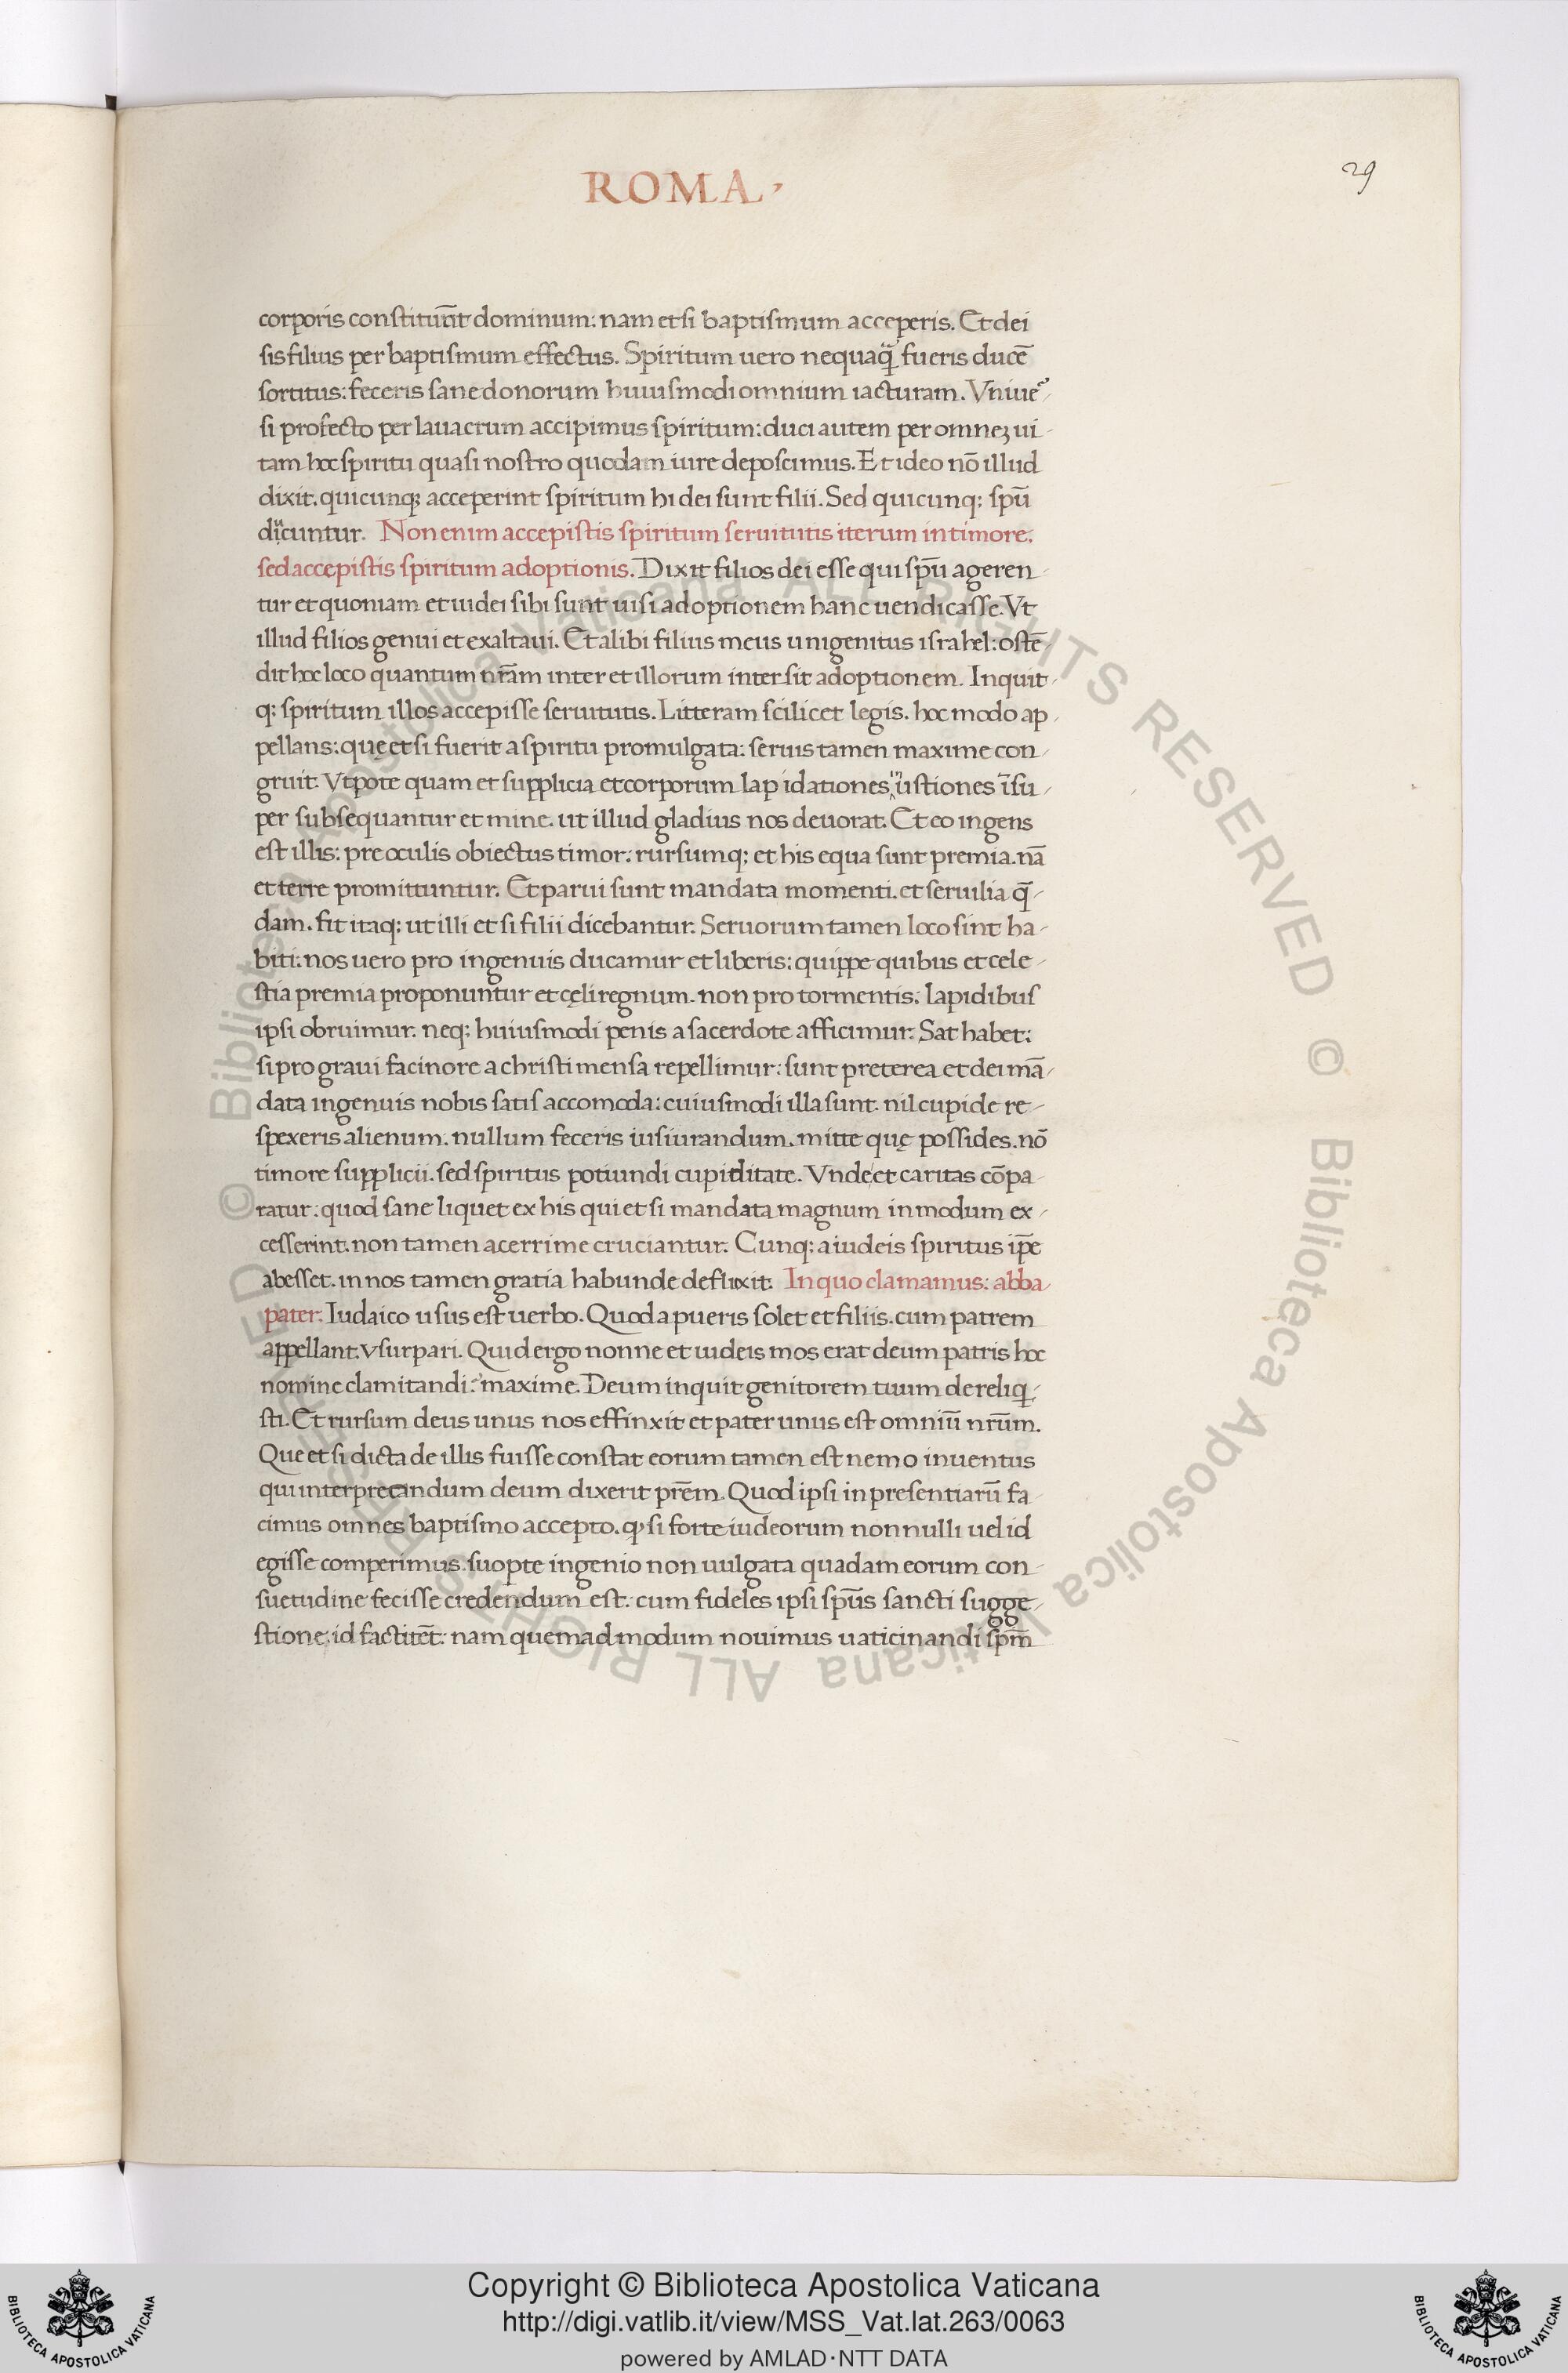 ROMA
29
corporis constituūt dominum: nam et si baptismum acceperis. Et dei
sis filius per baptismum effectus. Spiritum uero nequaq̄ fueris ducē
sortitus: feceris sane donorum huiusmodi omnium iacturam. Vniue-
si profecto per lauacrum accipimus spiritum: duci autem per omneʒ ui-
tam hoc spiritu quasi nostro quodam iure deposcimus. Et ideo nō illud
dixit. quicunq; acceperint spiritum hi dei sunt filii. Sed quicunq; spū
dicuntur. Non enim accepistis spiritum seruitutis iterum in timore.
sed accepistis spiritum adoptionis. Dixit filios dei esse qui spū ageren-
tur et quoniam et iudei sibi sunt uisi adoptionem hanc uendicasse. Vt
illud filios genui et exaltaui. Et alibi filius meus unigenitus israhel: ostē-
dit hoc loco quantum nr̄am inter et illorum inter sit adoptionem. Inquit-
q; spiritum illos accepisse seruitutis. Litteram scilicet legis. hoc modo ap-
pellans: quę et si fuerit a spiritu promulgata: seruis tamen maxime con-
gruit. Vtpote quam et supplicia et corporum lapidationes ustiones īsu-
per subsequantur et mine. ut illud gladius nos deuorat. Et eo ingens
est illis: pre oculis obiectus timor: rursumq; et his equa sunt premia. nā
et terre promittuntur. Et parui sunt mandata momenti. et seruilia q̄-
dam. fit itaq; ut illi et si filii dicebantur. Seruorum tamen loco sint ha-
biti: nos uero pro ingenuis ducamur et liberis: quippe quibus et cele-
stia premia proponuntur et cęli regnum. non pro tormentis: lapidibus
ipsi obruimur. neq; huiusmodi penis a sacerdote afficimur. Sat habet:
si pro graui facinore a christi mensa repellimur: sunt preterea et dei mā-
data ingenuis nobis satis accomoda: cuiusmodi illa sunt. nil cupide re-
spexeris alienum. nullum feceris iusiurandum. mitte quę possides. nō
timore supplicii. sed spiritus potiundi cupiditate. Vnde et caritas cōpa-
ratur: quod sane liquet ex his qui et si mandata magnum in modum ex-
cesserint. non tamen acerrime cruciantur. Cunq; a iudeis spiritus ip̄e
abesset. in nos tamen gratia habunde defluxit. In quo clamamus: abba-
pater. Iudaico usus est uerbo. Quod a pueris solet et filiis. cum patrem
appellant. vsurpari. Quid ergo nonne et iudeis mos erat deum patris hoc
nomine clamitandi? maxime. Deum inquit genitorem tuum dereliq-
sti. Et rursum deus unus nos effinxit et pater unus est omniū nr̄um.
Que et si dicta de illis fuisse constat eorum tamen est nemo inuentus
qui interprecandum deum dixerit pr̄em. Quod ipsi in presentiarū fa-
cimus omnes baptismo accepto. ꝙ si forte iudeorum nonnulli uel id
egisse comperimus. suopte ingenio non uulgata quadam eorum con-
suetudine fecisse credendum est: cum fideles ipsi spūs sancti sugge-
stione: id factitēt: nam quemadmodum nouimus uaticinandi spm̄
© Biblioteca Apostolica Vaticana ALL RIGHTS RESERVED © Biblioteca Apostolica Vaticana ALL RIGHTS RESERVED
Copyright © Biblioteca Apostolica Vaticana
http://digi.vatlib.it/view/MSS_Vat.lat.263/0063
powered by AMLAD·NTT DATA
BIBLIOTECA APOSTOLICA VATICANA
BIBLIOTECA APOSTOLICA VATICANA